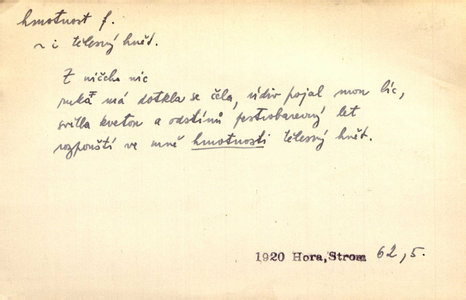 hmotnost f.
~ i tělesný hnět.
Z ničeho nic
ruka má dotkla se čela, údiv pojal mou líc,
světla květon a odstínů pestrobarevný let
rozpouští ve mně hmotnosti tělesný hnět.
1920 Hora, Strom 62, 5.